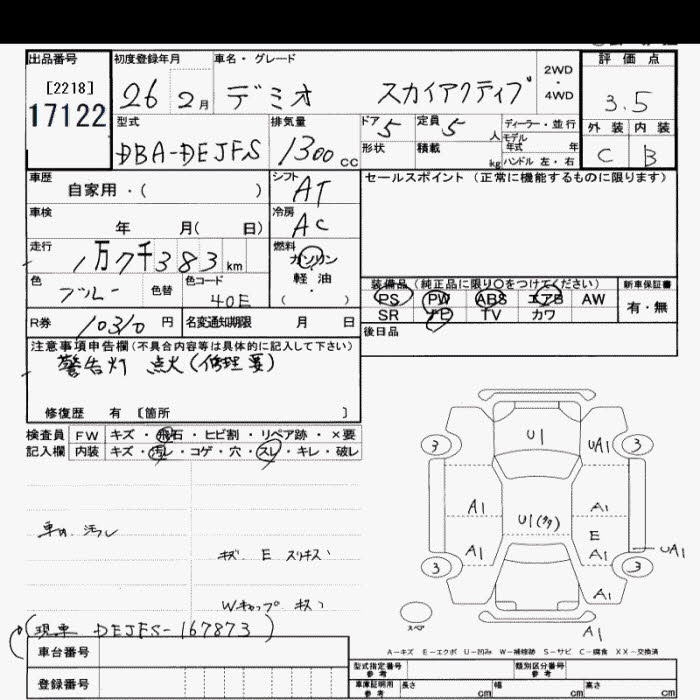 出品番号 初度登録年月 車名・グレード 2WD ・ 4WD 評価点
[2218]
17122 26 2月 デミオ スカイアクティブ 3.5
型式 排気量 ドア 5 定員 5人 ディーラー・並行 外装 内装
DBA-DEJFS 1300 cc 形状 積載 kg モデル年式 年 ハンドル 左・右 C B
車歴 自家用・( ) シフト AT セールスポイント (正常に機能するものに限ります)
車検 年 月( 日) 冷房 AC
走行 1万7千383km 燃料 ガソリン
色 ブルー 色替 色コード 40E 軽油 ・ ( )
装備品(純正品に限り○をつけてください) 新車保証書
PS PW ABS エアB AW 有・無
SR ナビ TV カワ
R券 10310円 名変通知期限 月 日 後日品
注意事項申告欄(不具合内容等は具体的に記入して下さい)
警告灯 点火(修理要)
修復歴 有 [箇所 ]
検査員 FW キズ・飛石・ヒビ割・リペア跡・×要
記入欄 内装 キズ・汚レ・コゲ・穴・スレ・キレ・破レ
U1 UA1
3 3
A1 U1(多) A1
E
A1 A1 UA1
3 3
A1
A1
車内 汚レ
キズ E スリキズ
Wキャップ
スペア
(現車 DEJFS-167873)
A-キズ E-エクボ U-凹み W-補修跡 S-サビ C-腐食 XX-交換済
車台番号 型式指定番号 参考 類別区分番号 参考
登録番号 車庫証明用 参考 長さ cm 幅 cm 高さ cm